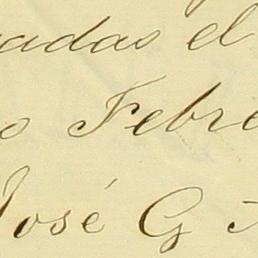 adas el
o Febre
José G